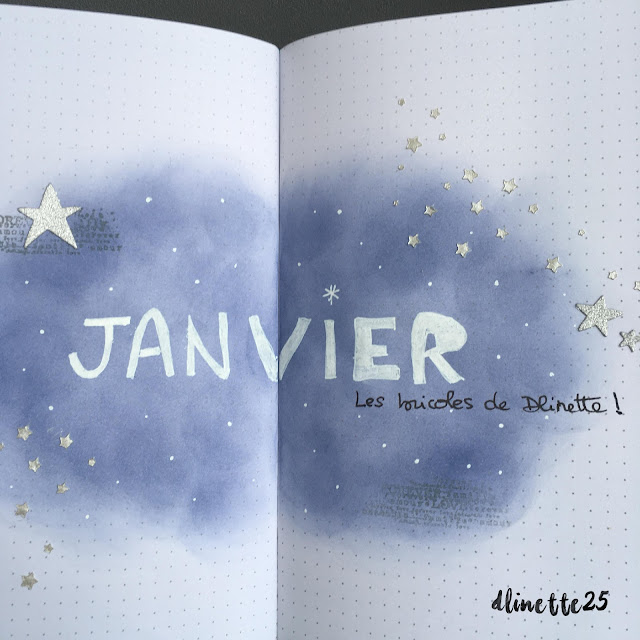 JANVIER
Les bricoles de Dlinette !
dlinette25